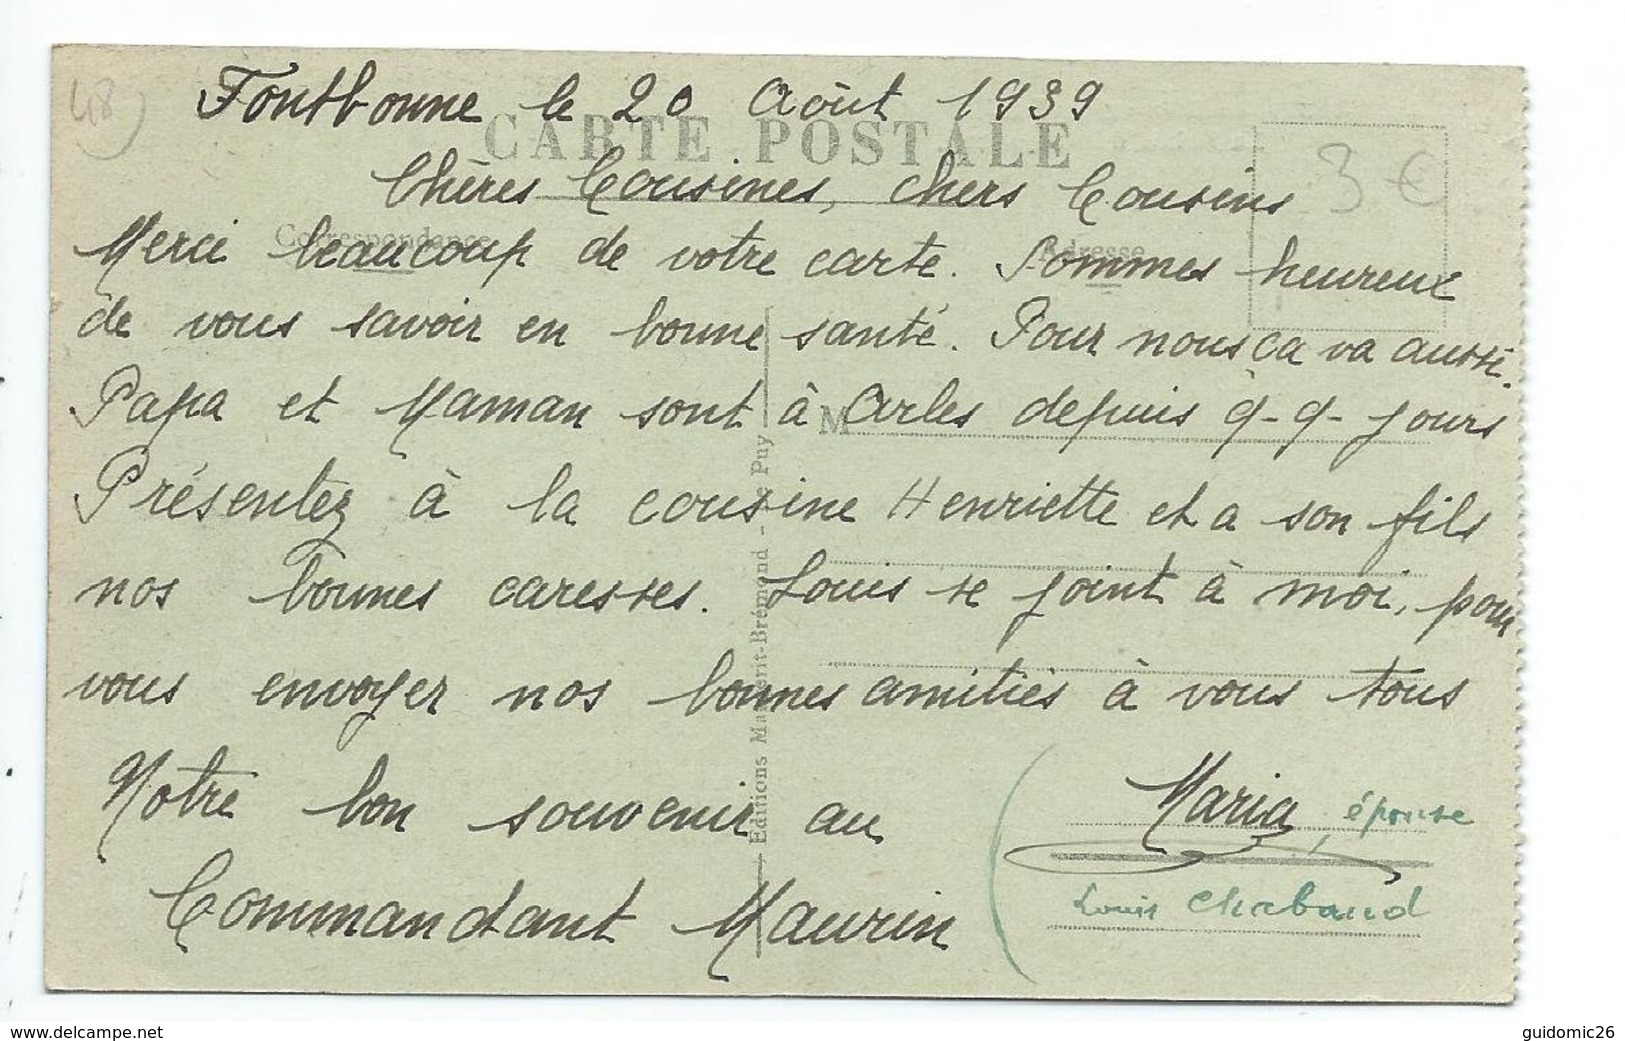 48)
Fontbonne le 20 Août 1939
CARTE POSTALE
3 €
Chères Cousines, chers Cousins
Correspondance
Adresse
Merci beaucoup de votre carte. Sommes heureux
de vous savoir en bonne santé. Pour nous ça va aussi.
Papa et Maman sont à Arles depuis q-q- jours
M
Présentez à la cousine Henriette et a son fils
nos bonnes caresses. Louis se joint à moi, pour
vous envoyer nos bonnes amitiés à vous tous
Notre bon souvenir au
Commandant Maurin
Maria, épouse
Louis Chabaud
Editions Margerit-Brémond - Le Puy
www.delcampe.net
guidomic26